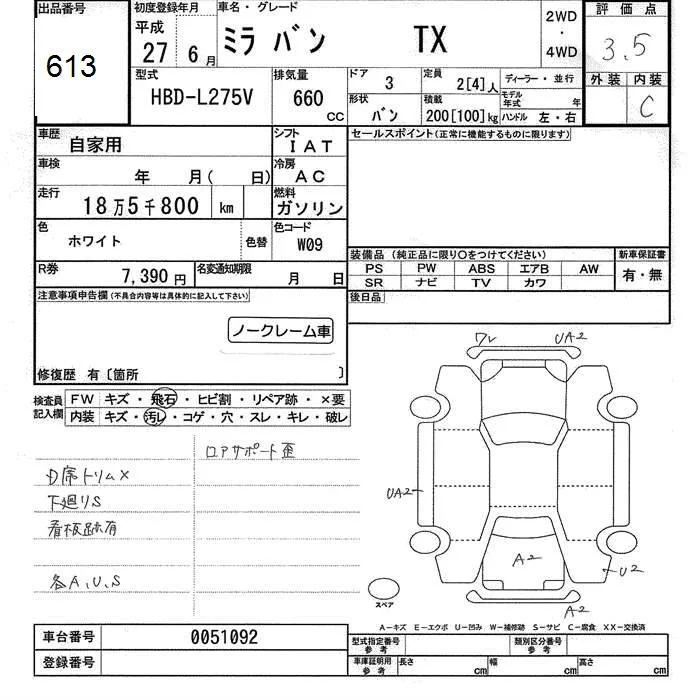 出品番号 初度登録年月 車名・グレード 2WD・4WD 評価点
613 平成27 6月 ミラ バン TX 3.5
型式 排気量 ドア 定員 ディーラー・並行 外装 内装
HBD-L275V 660 CC 3 2[4]人 モデル年式 年 C
形状 積載 ハンドル 左・右
バン 200[100]kg
車歴 シフト セールスポイント(正常に機能するものに限ります)
自家用 IAT
車検 冷房
年 月( 日) AC
走行 燃料
18万5千800 km ガソリン
色 色替 色コード
ホワイト W09
装備品(純正品に限り○をつけてください) 新車保証書
PS PW ABS エアB AW 有・無
SR ナビ TV カワ
R券 7,390円 名変通知期限 月 日
後日品
注意事項申告欄(不具合内容等は具体的に記入して下さい)
ノークレーム車
修復歴 有〔箇所 〕
検査員記入欄
FW キズ・飛石・ヒビ割・リペア跡・×要
内装 キズ・汚レ・コゲ・穴・スレ・キレ・破レ
ロアサポート歪
D席トリム×
下廻りS
看板跡有
各A、U、S
ワレ UA2
UA2
A2
U2
A2
スペア
A-キズ E-エクボ U-凹み W-補修跡 S-サビ C-腐食 XX-交換済
車台番号 0051092
登録番号
型式指定番号 参考 類別区分番号 参考
車庫証明用 参考 長さ cm 幅 cm 高さ cm